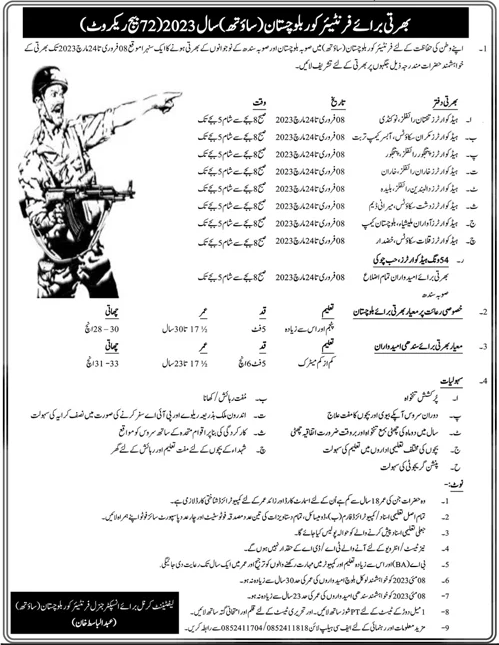 بھرتی برائے فرنٹیئر کور بلوچستان (ساؤتھ) سال 2023 (72 بیچ ریکروٹ)
۱۔ اپنے وطن کی حفاظت کے لئے فرنٹیئر کور بلوچستان (ساؤتھ) میں صوبہ بلوچستان اور صوبہ سندھ کے نوجوانوں کے بھرتی ہونے کا ایک سنہرا موقع 08 فروری تا 24 مارچ 2023 تک بھرتی کے
خواہشمند حضرات مندرجہ ذیل جگہوں پر بھرتی کے لئے تشریف لائیں۔
بھرتی دفتر تاریخ وقت
ا۔ ہیڈکوارٹرز تفتان رائفلز، نوکنڈی 08 فروری تا 24 مارچ 2023 صبح 8 بجے سے شام 5 بجے تک
ب۔ ہیڈکوارٹرز مکران سکاؤٹس، آبسر کیمپ تربت 08 فروری تا 24 مارچ 2023 صبح 8 بجے سے شام 5 بجے تک
پ۔ ہیڈکوارٹرز پنجگور رائفلز، پنجگور 08 فروری تا 24 مارچ 2023 صبح 8 بجے سے شام 5 بجے تک
ت۔ ہیڈکوارٹرز خاران رائفلز، خاران 08 فروری تا 24 مارچ 2023 صبح 8 بجے سے شام 5 بجے تک
ٹ۔ ہیڈکوارٹرز دالبندین رائفلز، بلیدہ 08 فروری تا 24 مارچ 2023 صبح 8 بجے سے شام 5 بجے تک
ث۔ ہیڈکوارٹرز دشت سکاؤٹس، میرانی ڈیم 08 فروری تا 24 مارچ 2023 صبح 8 بجے سے شام 5 بجے تک
ج۔ ہیڈکوارٹرز آواران ملیشیاء، بلوچستان کیمپ 08 فروری تا 24 مارچ 2023 صبح 8 بجے سے شام 5 بجے تک
چ۔ ہیڈکوارٹرز قلات سکاؤٹس، خضدار 08 فروری تا 24 مارچ 2023 صبح 8 بجے سے شام 5 بجے تک
ر۔ 54 ونگ ہیڈکوارٹرز، حب چوکی
بھرتی برائے امیدواران تمام اضلاع 08 فروری تا 24 مارچ 2023 صبح 8 بجے سے شام 5 بجے تک
صوبہ سندھ
2۔ خصوصی رعائت پر معیار بھرتی برائے بلوچستان تعلیم قد عمر چھاتی
پنجم اور اس سے زیادہ 5 فٹ 17 ½ تا 30 سال 28 - 30 انچ
3۔ معیار بھرتی برائے سندھی امیدواران تعلیم قد عمر چھاتی
کم از کم میٹرک 5 فٹ 6 انچ 17 ½ تا 23 سال 31 - 33 انچ
4۔ سہولیات
ا۔ پرکشش تنخواہ ب۔ مفت رہائش/کھانا
پ۔ دوران سروس آپکے بیوی اور بچوں کا مفت علاج ت۔ اندرون ملک بذریعہ ریلوے اور پی آئی اے سفر کرنے کی صورت میں نصف کرایہ کی سہولت
ٹ۔ سال میں دو ماہ کی چھٹی بمع تنخواہ اور بروقت ضرورت اتفاقیہ چھٹی ث۔ کارکردگی کی بنا پر اقوام متحدہ کے ساتھ سروس کے مواقع
ج۔ بچوں کی مختلف تعلیمی اداروں میں تعلیم کی سہولت چ۔ شہداء کے بچوں کے لئے مفت تعلیم اور رہائش کے لئے گھر
ح۔ پنشن گریجویٹی کی سہولت
نوٹ:-
1۔ وہ حضرات جن کی عمر 18 سال سے کم ہے اُن کے لئے اسمارٹ کارڈ اور زائد عمر کے لئے کمپیوٹرائزڈ شناختی کارڈ لازمی ہے۔
2۔ تمام اصل تعلیمی اسناد/کمپیوٹرائزڈ فارم (ب)، ڈومیسائل، تمام دستاویزات کی تین عدد مصدقہ فوٹو سٹیٹ اور چار عدد پاسپورٹ سائز فوٹو اپنے ہمراہ لائیں۔
3۔ جعلی تعلیمی اسناد پیش کرنے والے کو حوالہ پولیس کیا جائے گا۔
4۔ نیز ٹیسٹ/انٹرویو کے لئے آنے والے ٹی اے/ڈی اے کے حقدار نہیں ہوں گے۔
5۔ بی اے (BA) اور اس سے زیادہ تعلیم اور کمپیوٹر میں مہارت رکھنے والوں کو ترجیح اور عمر میں ایک سال تک رعایت دی جائیگی۔
6۔ 08 مئی 2023 کو خواہشمند لوکل بلوچ امیدواروں کی عمر کی حد 30 سال سے زیادہ نہ ہو۔
7۔ 08 مئی 2023 کو خواہشمند سندھی امیدواروں کی عمر کی حد 23 سال سے زیادہ نہ ہو۔
8۔ 1 میل دوڑ کے ٹیسٹ کے لئے PT شوز ساتھ لائیں۔ اور تحریری ٹیسٹ کے لئے قلم اور امتحانی گتہ ساتھ لائیں۔
9۔ مزید معلومات اور رہنمائی کے لئے ایف سی ہیلپ لائن 0852411818/0852411704 سے رابطہ کریں۔
لیفٹیننٹ کرنل برائے انسپکٹر جنرل فرنٹیئر کور بلوچستان (ساؤتھ)
(عبدالباسط خان)